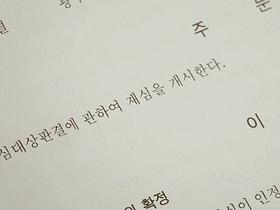 결
주 문
심대상판결에 관하여 재심을 개시한다.
이
확정
인정